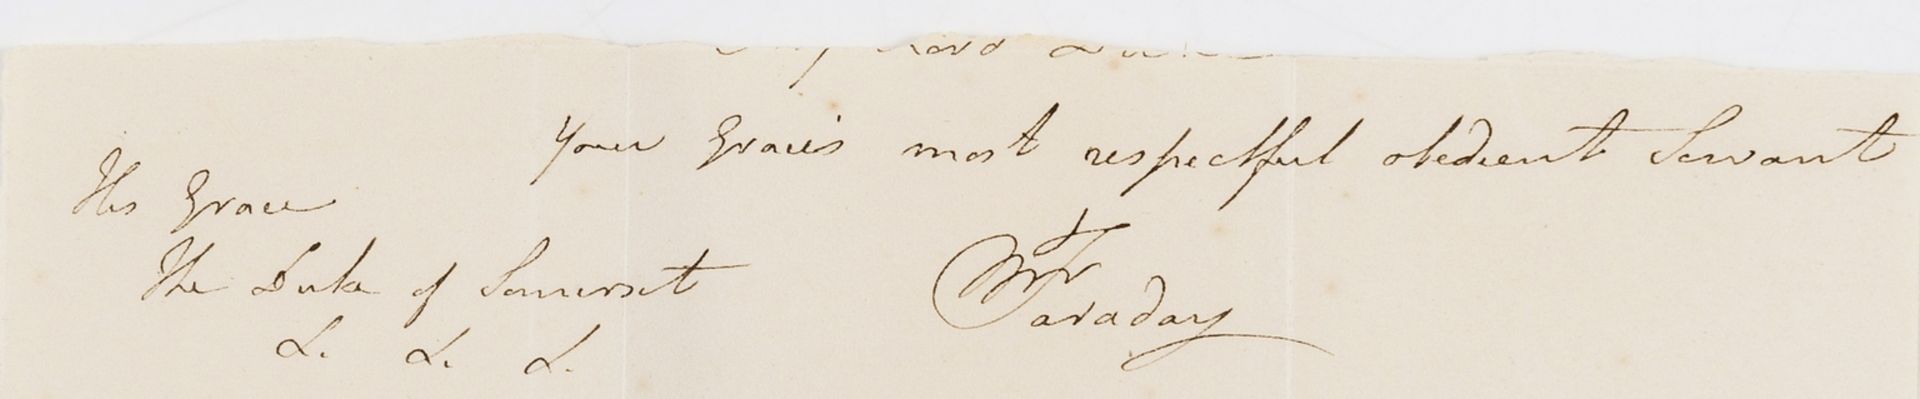 My Lord Duke
Your Grace's most respectful obedient Servant
His Grace
The Duke of Somerset
M Faraday
&. &. &.